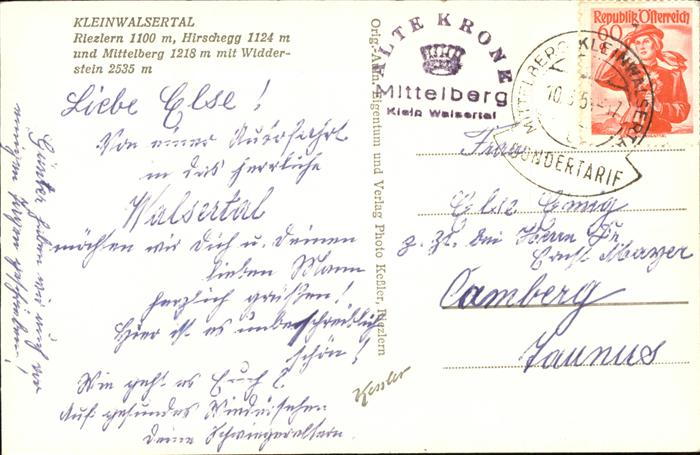 KLEINWALSERTAL
Riezlern 1100 m, Hirschegg 1124 m
und Mittelberg 1218 m mit Widder-
stein 2535 m
Liebe Else!
Von einer Autofahrt
in das herrliche
Walsertal
möchten wir Dich u. Deinen
lieben Mann
herzlich grüßen!
Hier ist es unbeschreiblich
schön!
Wie geht es Euch?
Auf gesundes Wiedersehen
Deine Schwiegereltern.
Günter haben wir auch vor
einigen geschrieben!
Orig.-Aufn. Eigentum und Verlag Photo Keßler, Riezlern
Kessler
ALTE KRONE
Mittelberg
Klein Walsertal
MITTELBERG KLEINWALSERTAL
SONDERTARIF
Republik Österreich
60
Frau
Else Emig
z. Zt. bei Herrn
Mayer
Camberg
Taunus